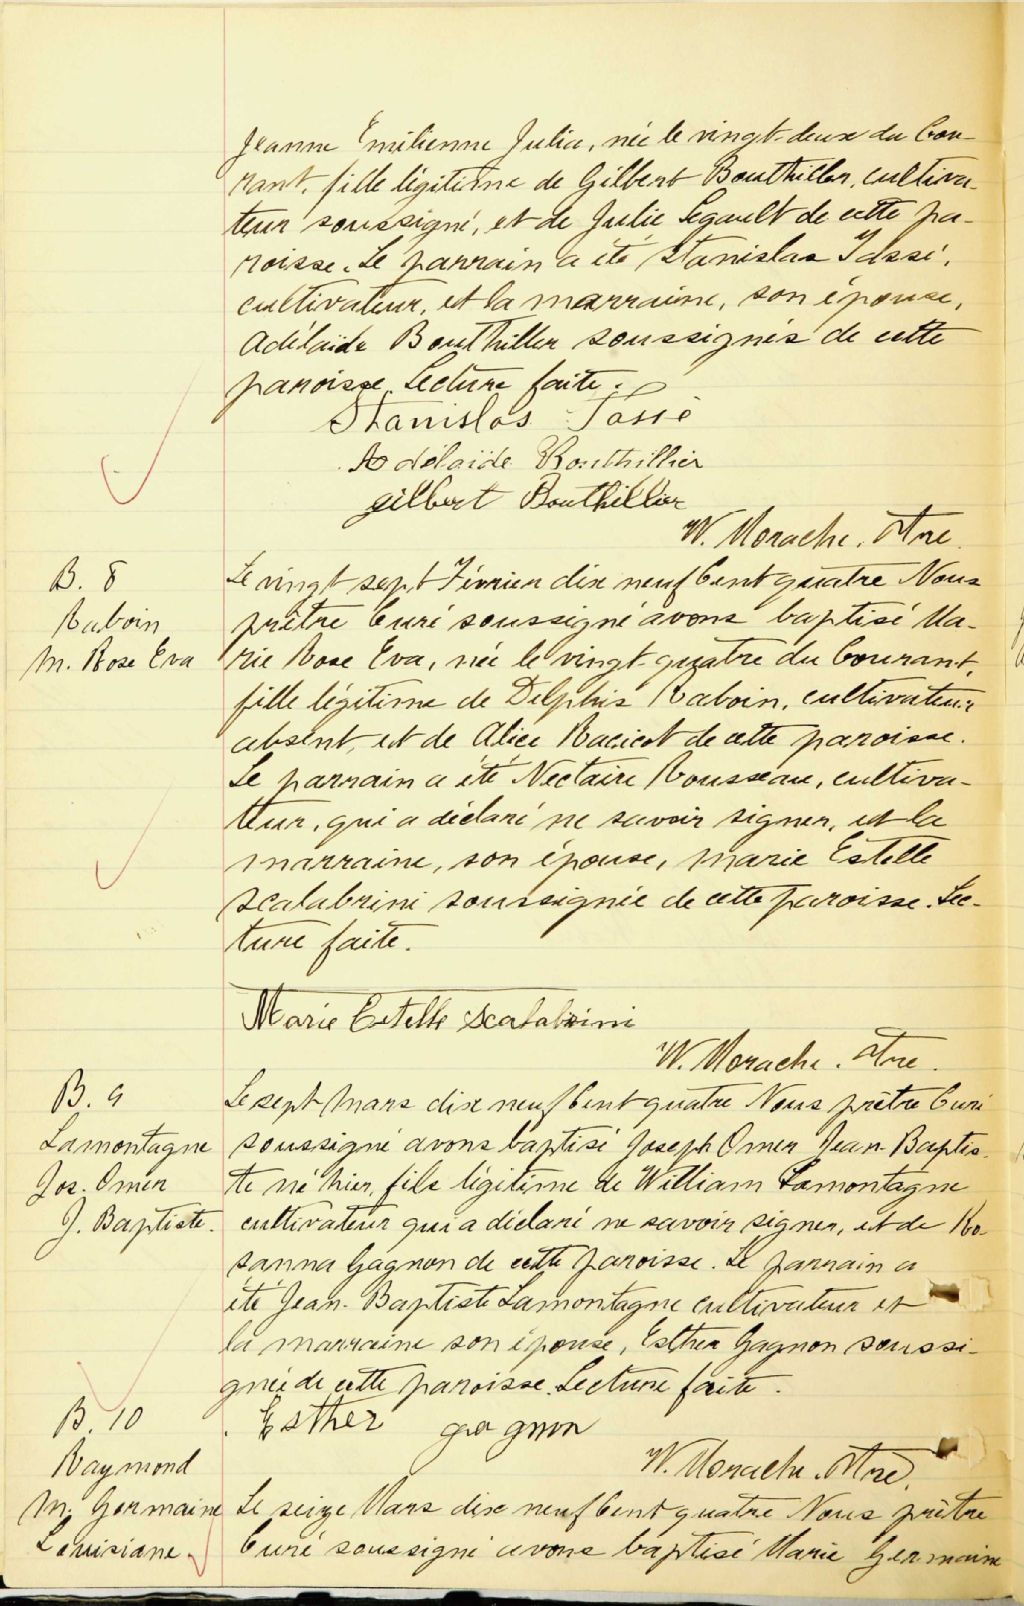 Jeanne Emilienne Julie, née le vingt-deux du Cou-
rant, fille légitime de Gilbert Bouthiller, cultiva-
teur soussigné, et de Julie Legault de cette pa-
roisse. Le parrain a été Stanislas Tassé,
cultivateur, et la marraine, son épouse,
Adélaïde Bouthiller soussignés de cette
paroisse. Lecture faite.
Stanislas Tassé
Adélaïde Bouthillier
Gilbert Bouthillier
W. Morache, Ptre.
B. 8
Raboin
M. Rose Eva
Le vingt sept Février dix neuf Cent quatre Nous
prêtre Curé soussigné avons baptisé Ma-
rie Rose Eva, née le vingt-quatre du Courant,
fille légitime de Delphis Raboin, cultivateur
absent, et de Alice Racicot de cette paroisse.
Le parrain a été Nectaire Rousseau, cultiva-
teur, qui a déclaré ne savoir signer, et la
marraine, son épouse, Marie Estelle
Scalabrini soussignée de cette paroisse. Lec-
ture faite.
Marie Estelle Scalabrini
W. Morache, Ptre.
B. 9
Lamontagne
Jos. Omer
J. Baptiste.
Le sept Mars dix neuf Cent quatre Nous prêtre Curé
soussigné avons baptisé Joseph Omer Jean-Baptis-
te né hier, fils légitime de William Lamontagne
cultivateur qui a déclaré ne savoir signer, et de Ro-
sanna Gagnon de cette paroisse. Le parrain a
été Jean-Baptiste Lamontagne cultivateur et
la marraine son épouse, Esther Gagnon soussi-
gnée de cette paroisse. Lecture faite.
Esther gagnon
W. Morache, Ptre.
B. 10
Raymond
M. Germaine
Louisiane.
Le seize Mars dix neuf Cent quatre Nous prêtre
Curé soussigné avons baptisé Marie Germaine